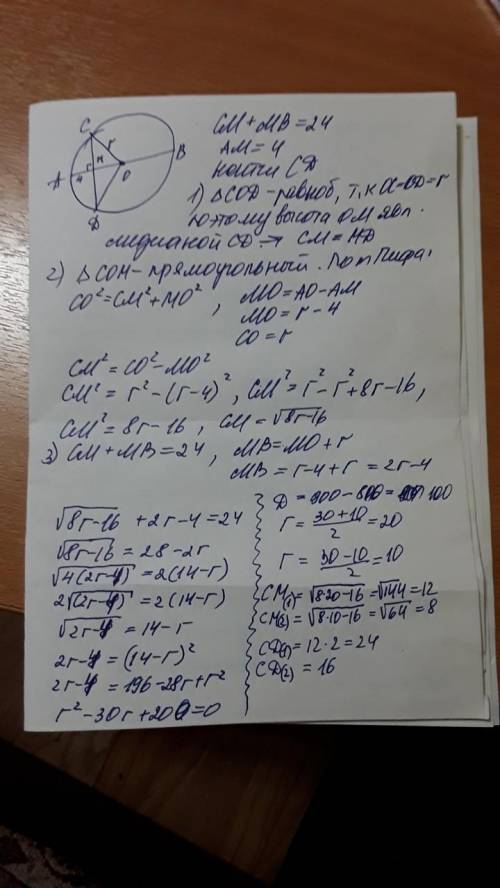 C
r
M
B
A
4
O
D
CM + MB = 24
AM = 4
найти CD
1) △COD - равноб, т.к OC=OD=r
поэтому высота OM явл.
медианой CD → CM = MD
2) △COM - прямоугольный. По т Пифа:
CO² = CM² + MO² , MO = AO - AM
MO = r - 4
CO = r
CM² = CO² - MO²
CM² = r² - (r-4)² , CM² = r² - r² + 8r - 16 ,
CM² = 8r - 16 , CM = √8r-16
3) CM + MB = 24 , MB = MO + r
MB = r - 4 + r = 2r - 4
√8r-16 + 2r - 4 = 24
√8r-16 = 28 - 2r
√4(2r-4) = 2(14-r)
2√(2r-4) = 2(14-r)
√2r-4 = 14 - r
2r - 4 = (14-r)²
2r - 4 = 196 - 28r + r²
r² - 30r + 200 = 0
D = 900 - 800 = 100
r = 30+10/2 = 20
r = 30-10/2 = 10
CM(1) = √8·20-16 = √144 = 12
CM(2) = √8·10-16 = √64 = 8
CD(1) = 12·2 = 24
CD(2) = 16